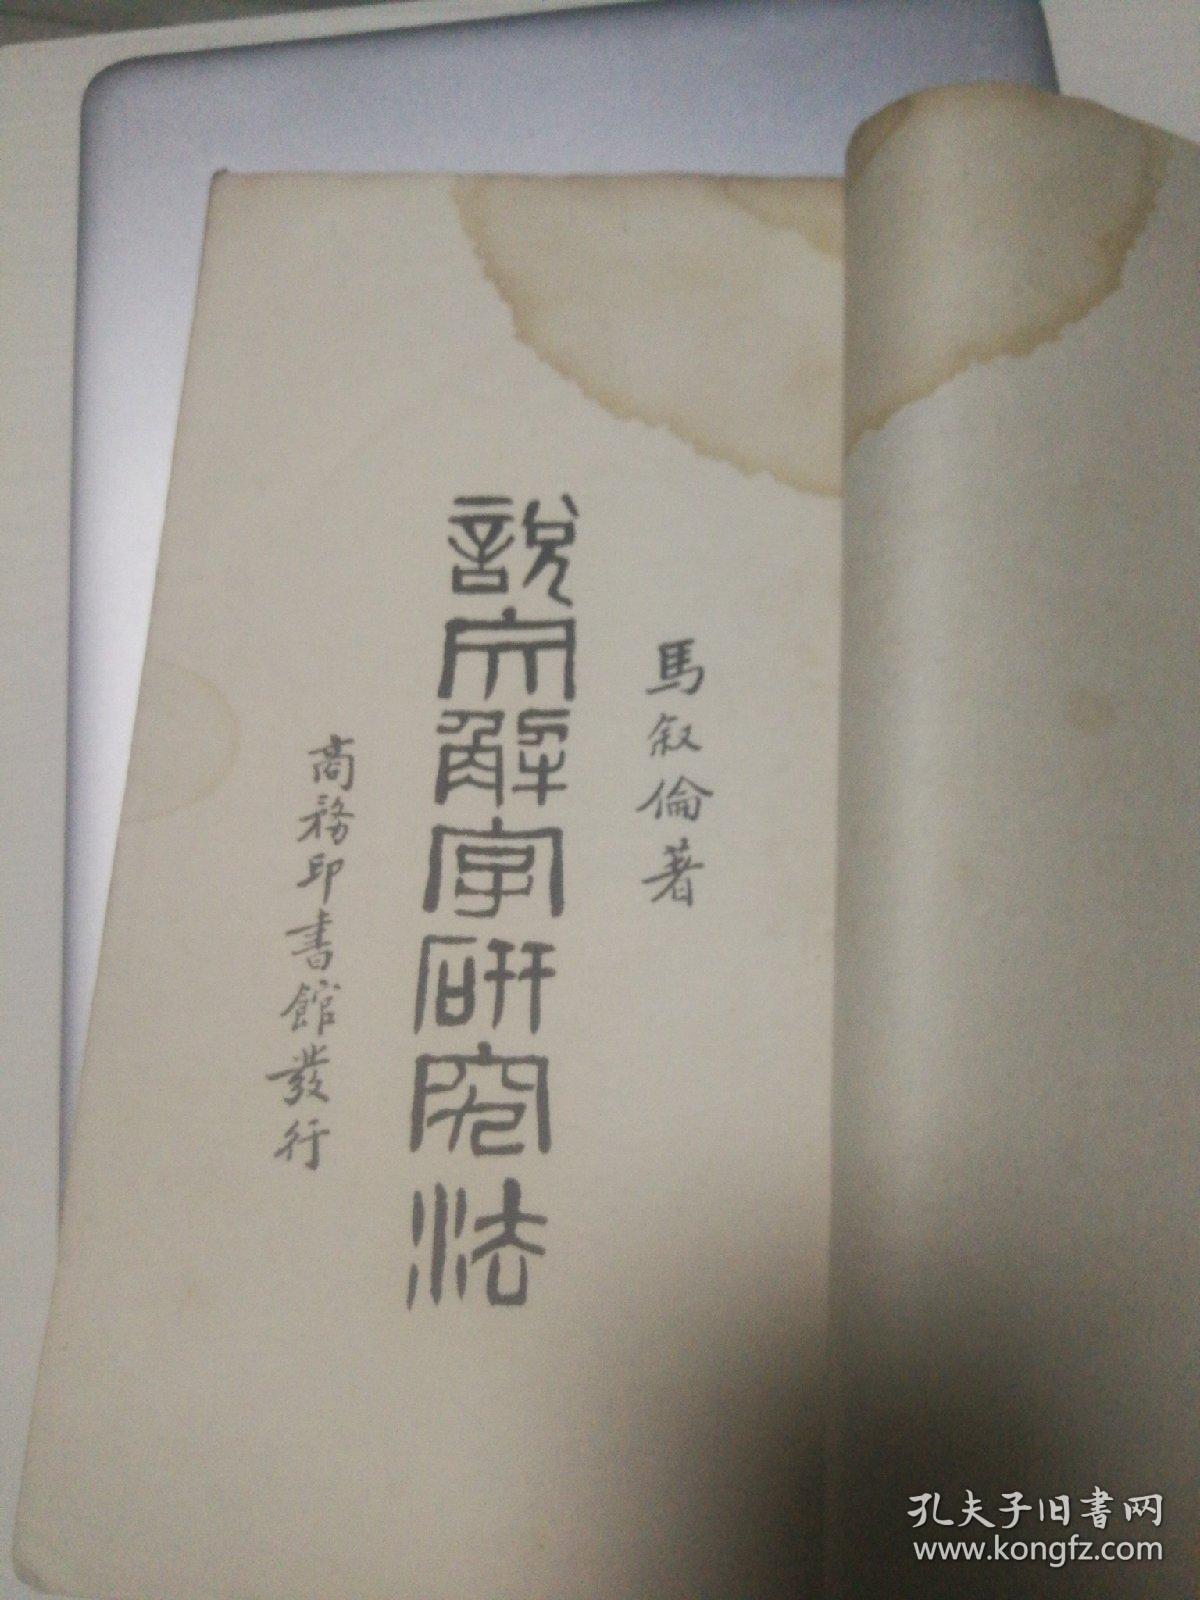 馬叙倫著
說文解字研究法
商務印書館發行
孔夫子旧书网
www.kongfz.com